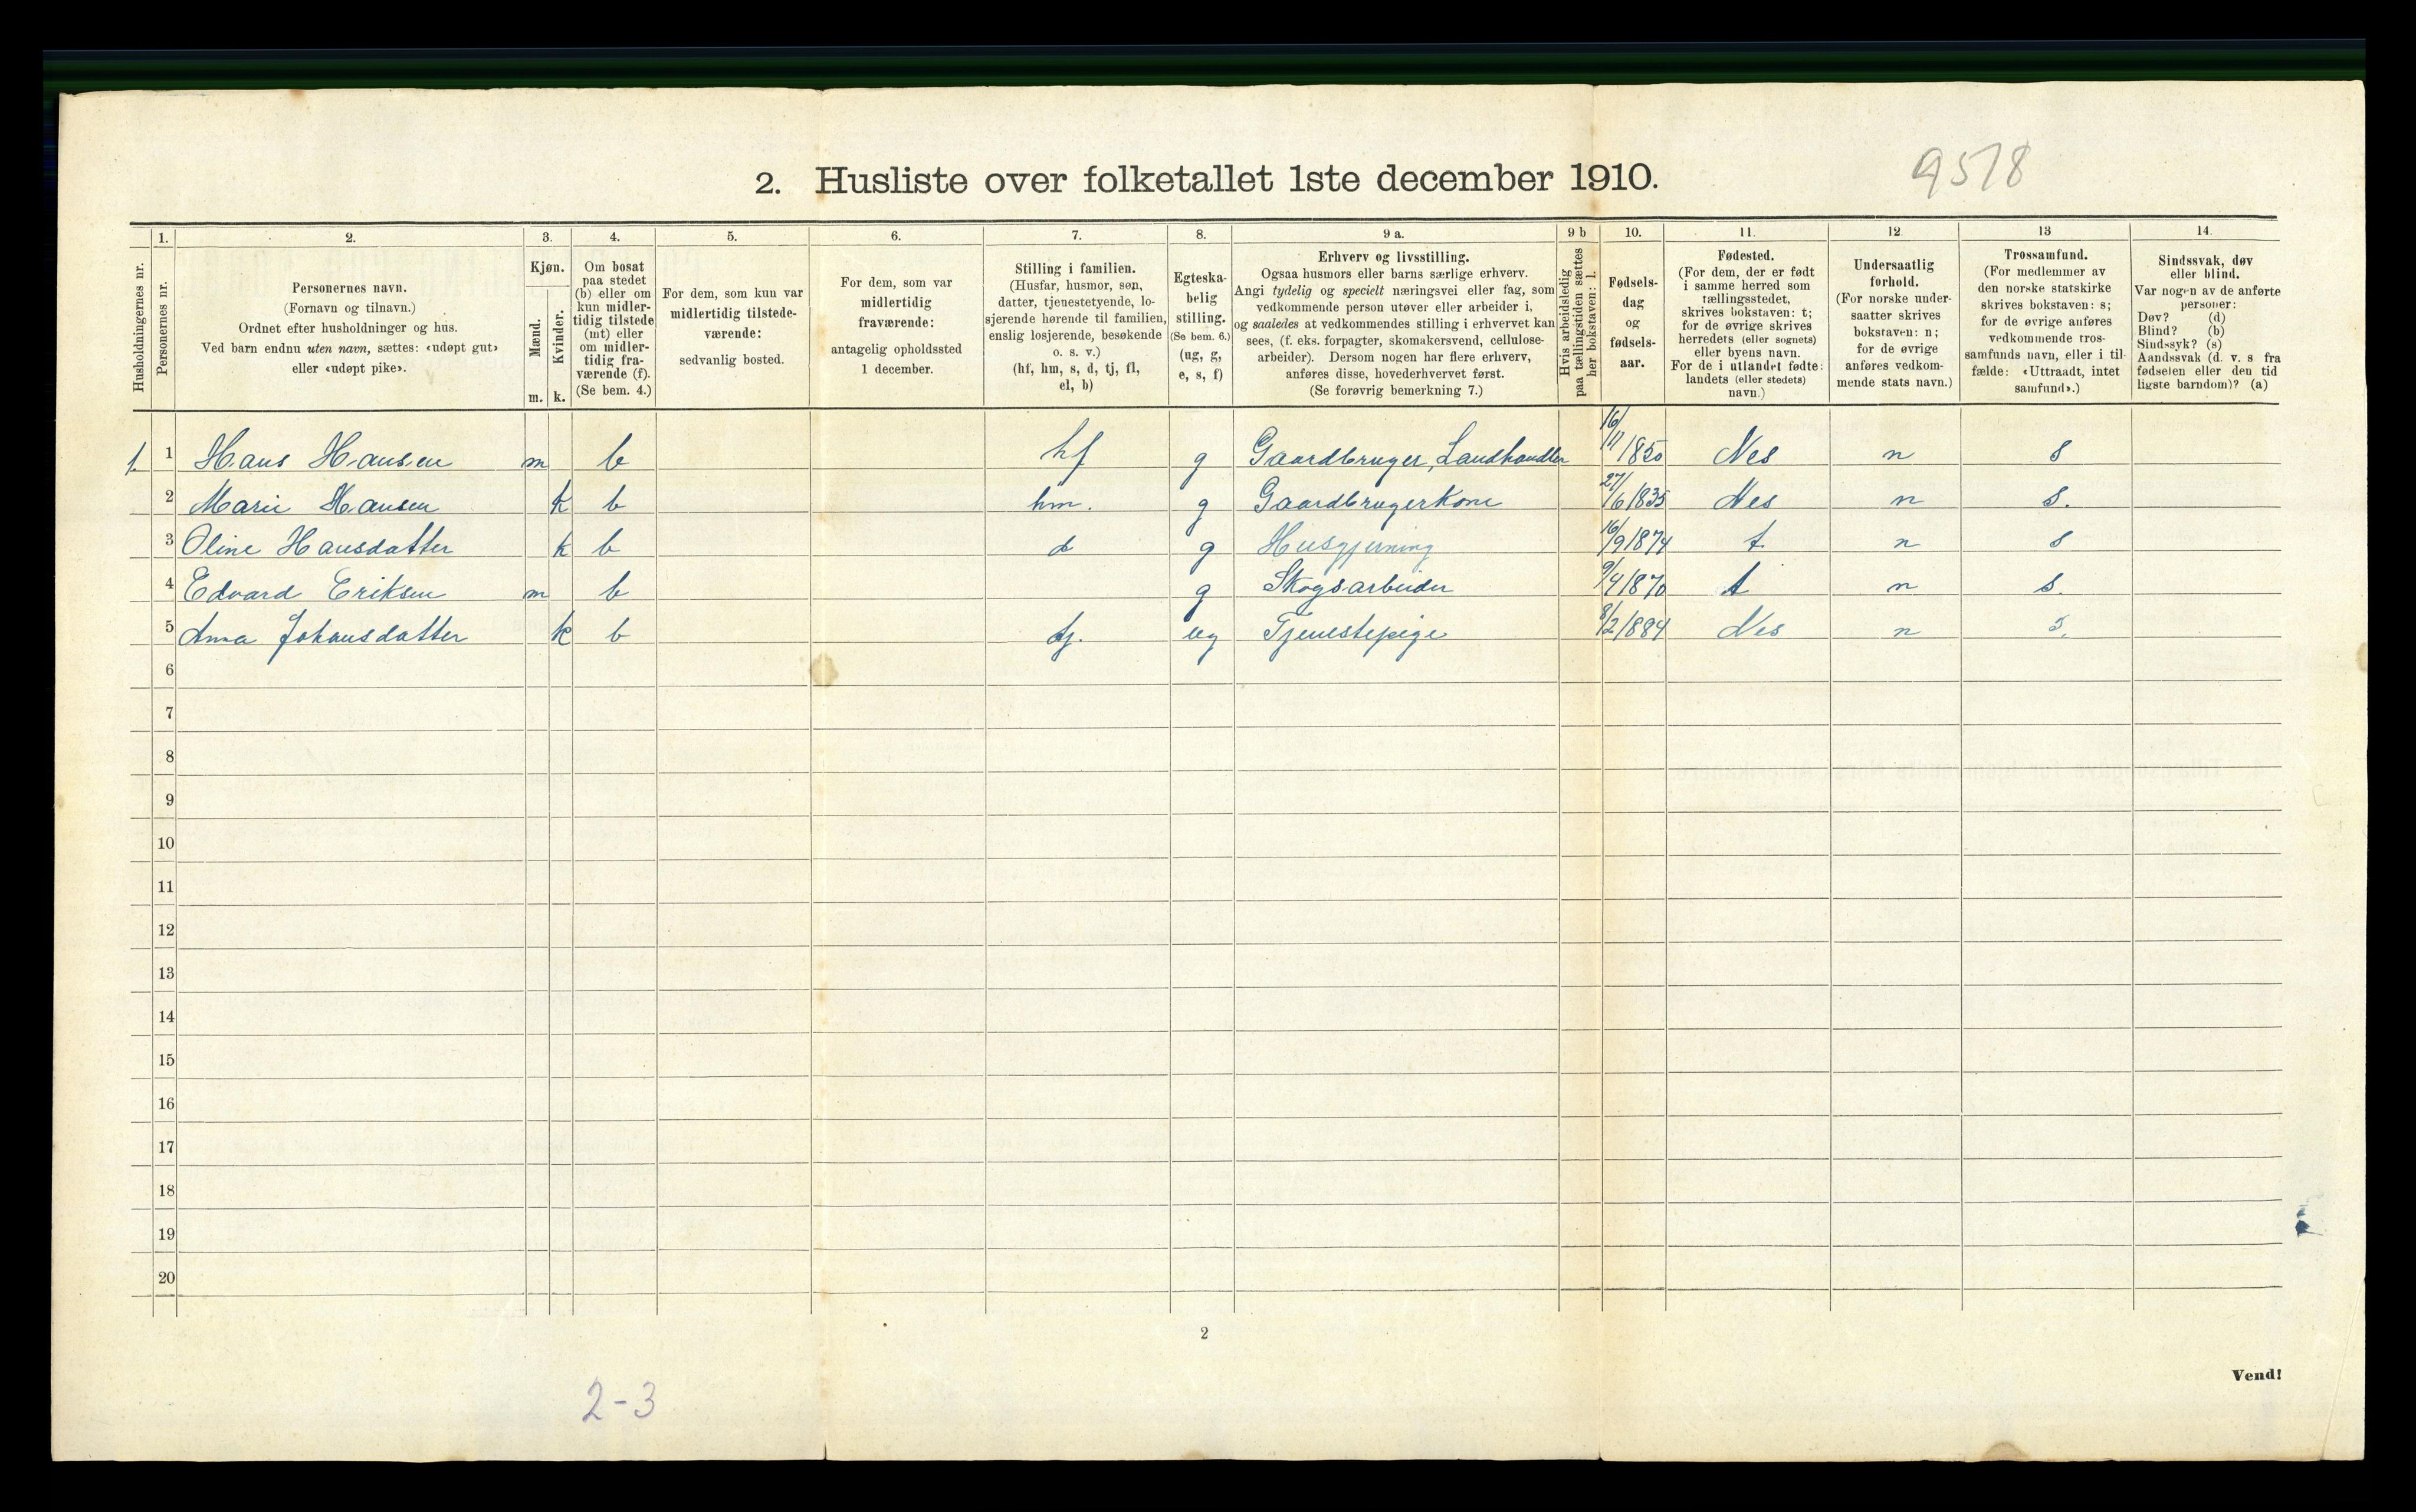 2. Husliste over folketallet 1ste december 1910.
9578
Husholdningernes nr.
1.
Personernes nr.
2.
Personernes navn.
(Fornavn og tilnavn.)
Ordnet efter husholdninger og hus.
Ved barn endnu uten navn, sættes: «udøpt gut»
eller «udøpt pike».
3.
Kjøn.
Mænd.
Kvinder.
m. k.
4.
Om bosat
paa stedet
(b) eller om
kun midler-
tidig tilstede
(mt) eller
om midler-
tidig fra-
værende (f).
(Se bem. 4.)
5.
For dem, som kun var
midlertidig tilstede-
værende:
sedvanlig bosted.
6.
For dem, som var
midlertidig
fraværende:
antagelig opholdssted
1 december.
7.
Stilling i familien.
(Husfar, husmor, søn,
datter, tjenestetyende, lo-
sjerende hørende til familien,
enslig losjerende, besøkende
o. s. v.)
(hf, hm, s, d, tj, fl,
el, b)
8.
Egteska-
belig
stilling.
(Se bem. 6.)
(ug, g,
e, s, f)
9 a.
Erhverv og livsstilling.
Ogsaa husmors eller barns særlige erhverv.
Angi tydelig og specielt næringsvei eller fag, som
vedkommende person utøver eller arbeider i,
og saaledes at vedkommendes stilling i erhvervet kan
sees, (f. eks. forpagter, skomakersvend, cellulose-
arbeider). Dersom nogen har flere erhverv,
anføres disse, hovederhvervet først.
(Se forøvrig bemerkning 7.)
9 b
Hvis arbeidsledig
paa tællingstiden sættes
her bokstaven: l.
10.
Fødsels-
dag
og
fødsels-
aar.
11.
Fødested.
(For dem, der er født
i samme herred som
tællingsstedet,
skrives bokstaven: t;
for de øvrige skrives
herredets (eller sognets)
eller byens navn.
For de i utlandet fødte:
landets (eller stedets)
navn.)
12.
Undersaatlig
forhold.
(For norske under-
saatter skrives
bokstaven: n;
for de øvrige
anføres vedkom-
mende stats navn.)
13
Trossamfund.
(For medlemmer av
den norske statskirke
skrives bokstaven: s;
for de øvrige anføres
vedkommende tros-
samfunds navn, eller i til-
fælde: «Uttraadt, intet
samfund».)
14.
Sindssvak, døv
eller blind.
Var nogen av de anførte
personer:
Døv? (d)
Blind? (b)
Sindssyk? (s)
Aandssvak (d. v. s. fra
fødselen eller den tid
ligste barndom)? (a)
1. 1 Hans Hansen m b hf g Gaardbruger, Landhandler 16/11 1850 Nes n s
2 Marie Hansen k b hm. g Gaardbrugerkone 27/6 1835 Nes n s.
3 Oline Hansdatter k b d g Husgjerning 16/9 1874 t. n s
4 Edvard Eriksen m b g Skogsarbeider 9/4 1870 t n s.
5 Anna Johansdatter k b tj. ug Tjenestepige 8/2 1884 Nes n s.
6
7
8
9
10
11
12
13
14
15
16
17
18
19
20
2
Vend!
2-3